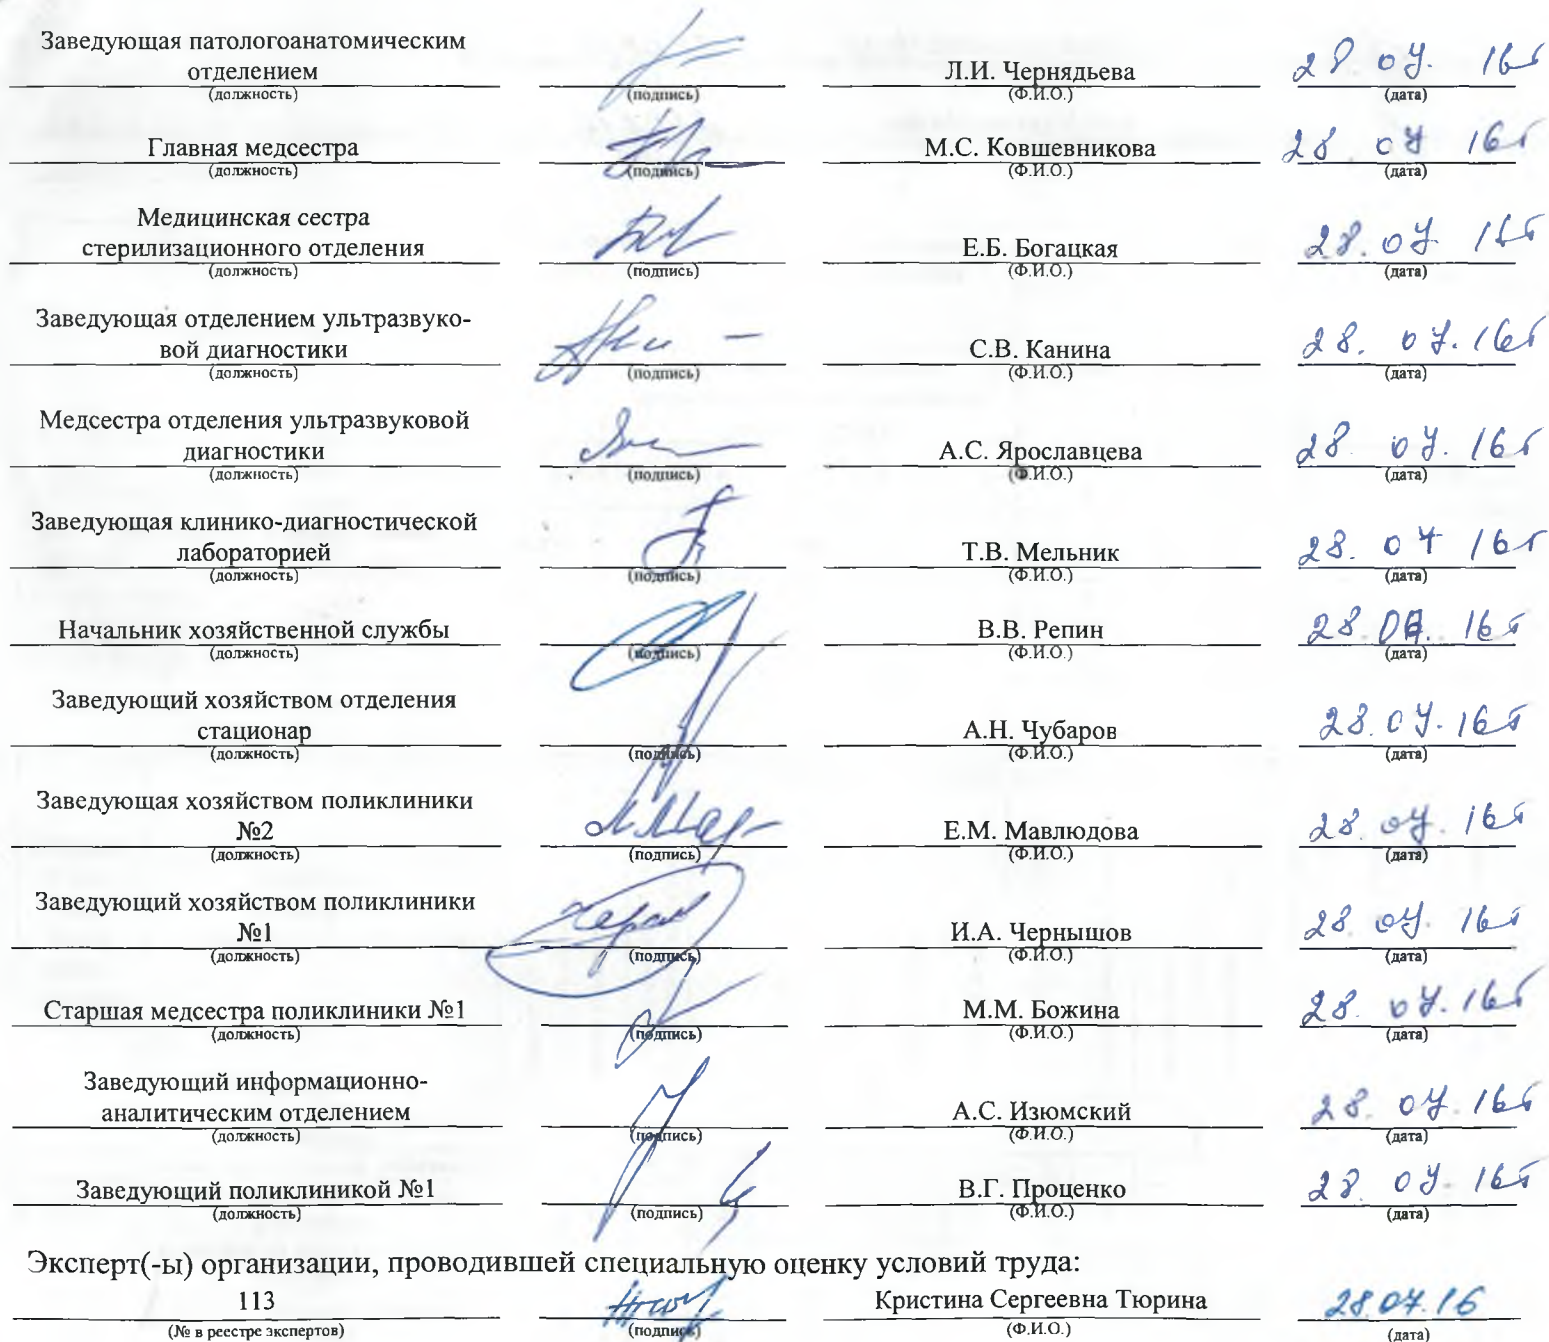 Заведующая патологоанатомическим
отделением Л.И. Чернядьева 28 07. 16г
(должность) (подпись) (Ф.И.О.) (дата)
Главная медсестра М.С. Ковшевникова 28 07 16г
(должность) (подпись) (Ф.И.О.) (дата)
Медицинская сестра
стерилизационного отделения Е.Б. Богацкая 28.07 16г
(должность) (подпись) (Ф.И.О.) (дата)
Заведующая отделением ультразвуко-
вой диагностики С.В. Канина 28. 07. 16г
(должность) (подпись) (Ф.И.О.) (дата)
Медсестра отделения ультразвуковой
диагностики А.С. Ярославцева 28 07. 16г
(должность) (подпись) (Ф.И.О.) (дата)
Заведующая клинико-диагностической
лабораторией Т.В. Мельник 28. 07 16г
(должность) (подпись) (Ф.И.О.) (дата)
Начальник хозяйственной службы В.В. Репин 28.07. 16г
(должность) (подпись) (Ф.И.О.) (дата)
Заведующий хозяйством отделения
стационар А.Н. Чубаров 28.07. 16г
(должность) (подпись) (Ф.И.О.) (дата)
Заведующая хозяйством поликлиники
№2 Е.М. Мавлюдова 28. 07. 16г
(должность) (подпись) (Ф.И.О.) (дата)
Заведующий хозяйством поликлиники
№1 И.А. Чернышов 28 07. 16г
(должность) (подпись) (Ф.И.О.) (дата)
Старшая медсестра поликлиники №1 М.М. Божина 28. 07. 16г
(должность) (подпись) (Ф.И.О.) (дата)
Заведующий информационно-
аналитическим отделением А.С. Изюмский 28. 07. 16г
(должность) (подпись) (Ф.И.О.) (дата)
Заведующий поликлиникой №1 В.Г. Проценко 28 07. 16г
(должность) (подпись) (Ф.И.О.) (дата)
Эксперт(-ы) организации, проводившей специальную оценку условий труда:
113 Кристина Сергеевна Тюрина 28.07.16
(№ в реестре экспертов) (подпись) (Ф.И.О.) (дата)